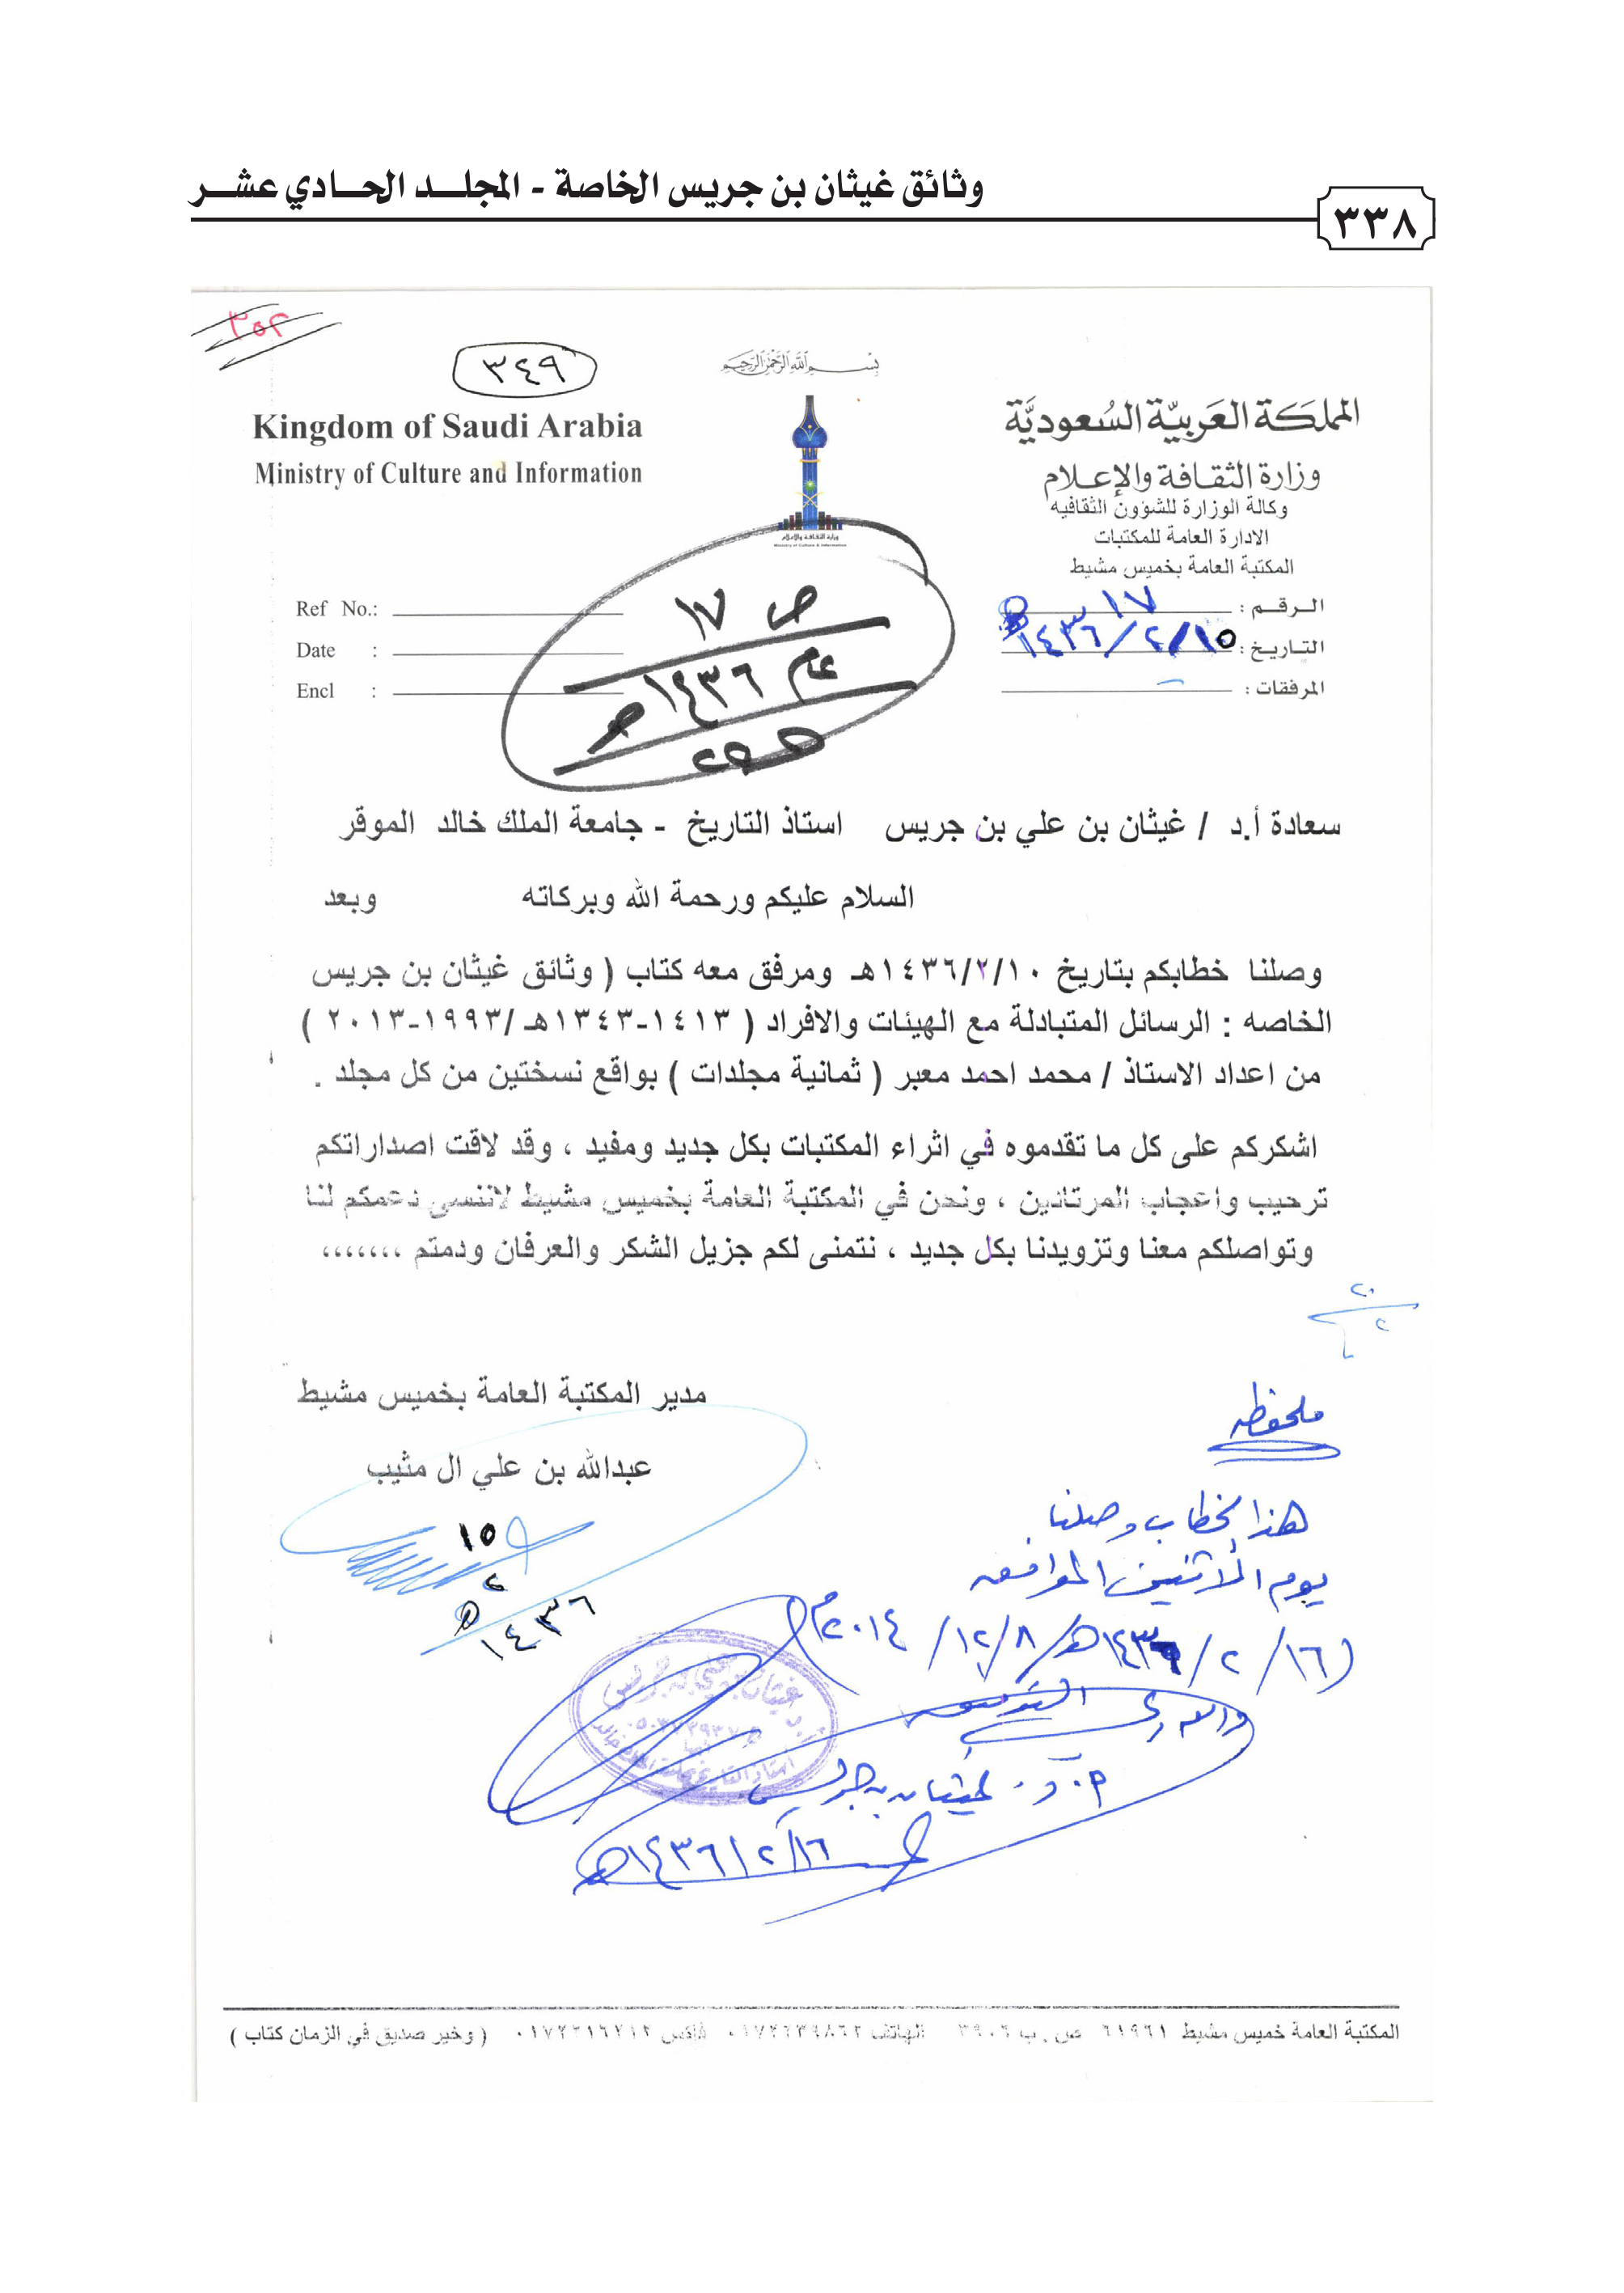 وثائق غيثان بن جريس الخاصة - المجلد الحادي عشر
٣٣٨
٣٥٢
٣٤٩
بسم الله الرحمن الرحيم
Kingdom of Saudi Arabia
Ministry of Culture and Information
المملكة العربية السعودية
وزارة الثقافة والإعلام
وكالة الوزارة للشؤون الثقافيه
الادارة العامة للمكتبات
المكتبة العامة بخميس مشيط
وزارة الثقافة والإعلام
Ministry of Culture & Information
الرقم : ١٧
التاريخ : ١٤٣٦/٢/١٥هـ
المرفقات :
Ref No.:
Date :
Encl :
ص ١٧
عام ١٤٣٦هـ
سعادة أ.د / غيثان بن علي بن جريس استاذ التاريخ - جامعة الملك خالد الموقر
السلام عليكم ورحمة الله وبركاته وبعد
وصلنا خطابكم بتاريخ ١٤٣٦/٢/١٠هـ ومرفق معه كتاب ( وثائق غيثان بن جريس
الخاصه : الرسائل المتبادلة مع الهيئات والافراد ( ١٤١٣-١٣٤٣هـ /١٩٩٣-٢٠١٣ )
من اعداد الاستاذ / محمد احمد معبر ( ثمانية مجلدات ) بواقع نسختين من كل مجلد .
اشكركم على كل ما تقدموه في اثراء المكتبات بكل جديد ومفيد ، وقد لاقت اصداراتكم
ترحيب واعجاب المرتادين ، ونحن في المكتبة العامة بخميس مشيط لاننسى دعمكم لنا
وتواصلكم معنا وتزويدنا بكل جديد ، نتمنى لكم جزيل الشكر والعرفان ودمتم ،،،،،،،
مدير المكتبة العامة بخميس مشيط
عبدالله بن علي ال مثيب
١٥
٢
١٤٣٦هـ
ملحفظه
هذا الخطاب وصلنا
يوم الاثنين الموافق
(١٦/ ٢ /١٤٣٦هـ/ ٨/ ١٢/ ٢٠١٤م)
والله ولي التوفيق
أ.د. غيثان بن جريس
١٤٣٦/٢/١٦هـ
المكتبة العامة خميس مشيط ٦١٩٦١ ص . ب ٣٩٠٦ الهاتف ٠١٧٢٢٣٩٨٦٢ فاكس ٠١٧٢٢١٦٢١٢ ( وخير صديق في الزمان كتاب )